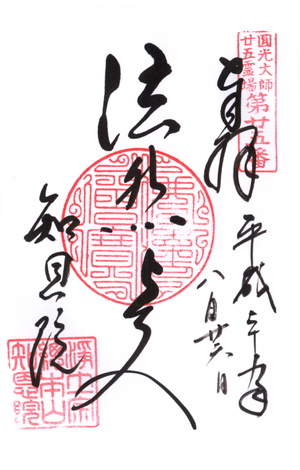 圓光大師
廿五霊場
第廿五番
奉拝
平成
八月廿六日
法然上人
知恩院
淨土宗
總本山
知恩院